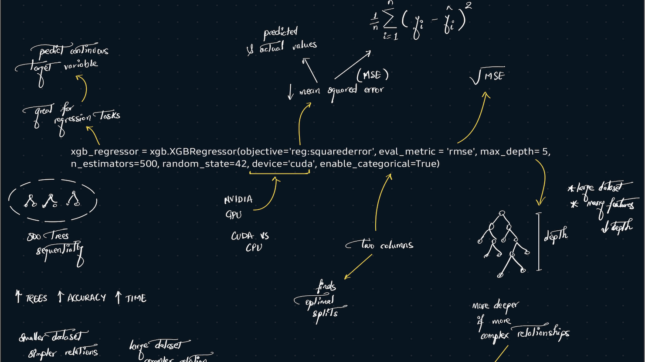 1/n n∑i=1 (yi - ŷi)²
predict continuous
target variable
great for
regression tasks
predicted
vs actual values
(MSE)
↓ mean squared error
√MSE
xgb_regressor = xgb.XGBRegressor(objective='reg:squarederror', eval_metric = 'rmse', max_depth= 5,
n_estimators=500, random_state=42, device='cuda', enable_categorical=True)
500 Trees
sequentially
NVIDIA
GPU
CUDA VS
CPU
Two columns
finds
optimal
splits
* large dataset
* many features
↓ depth
depth
↑ TREES ↑ ACCURACY ↑ TIME
more deeper
if more
complex relationships
smaller dataset
simpler relations
large dataset